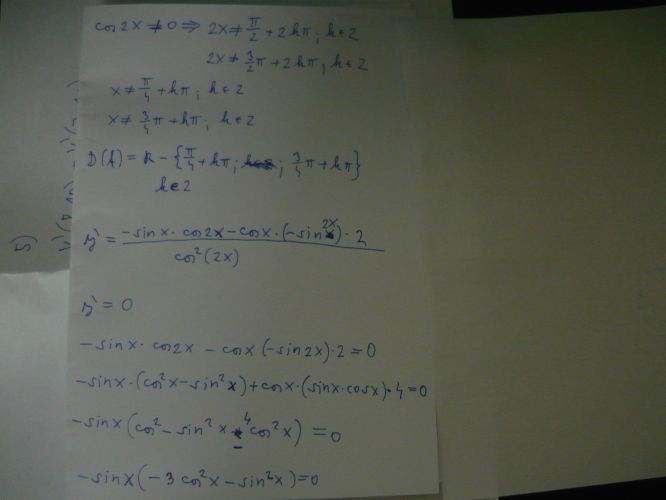 cos2x ≠ 0 ⇒ 2x ≠ π/2 + 2kπ; k∈Z
2x ≠ 3/2π + 2kπ; k∈Z
x ≠ π/4 + kπ; k∈Z
x ≠ 3/4π + kπ; k∈Z
D(f) = R - {π/4 + kπ; 3/4π + kπ}
k∈Z
y' = (-sinx · cos2x - cosx · (-sin2x) · 2) / cos²(2x)
y' = 0
-sinx · cos2x - cosx (-sin2x) · 2 = 0
-sinx · (cos²x - sin²x) + cosx · (sinx · cosx) · 4 = 0
-sinx (cos² - sin²x - 4cos²x) = 0
-sinx (-3cos²x - sin²x) = 0
5)